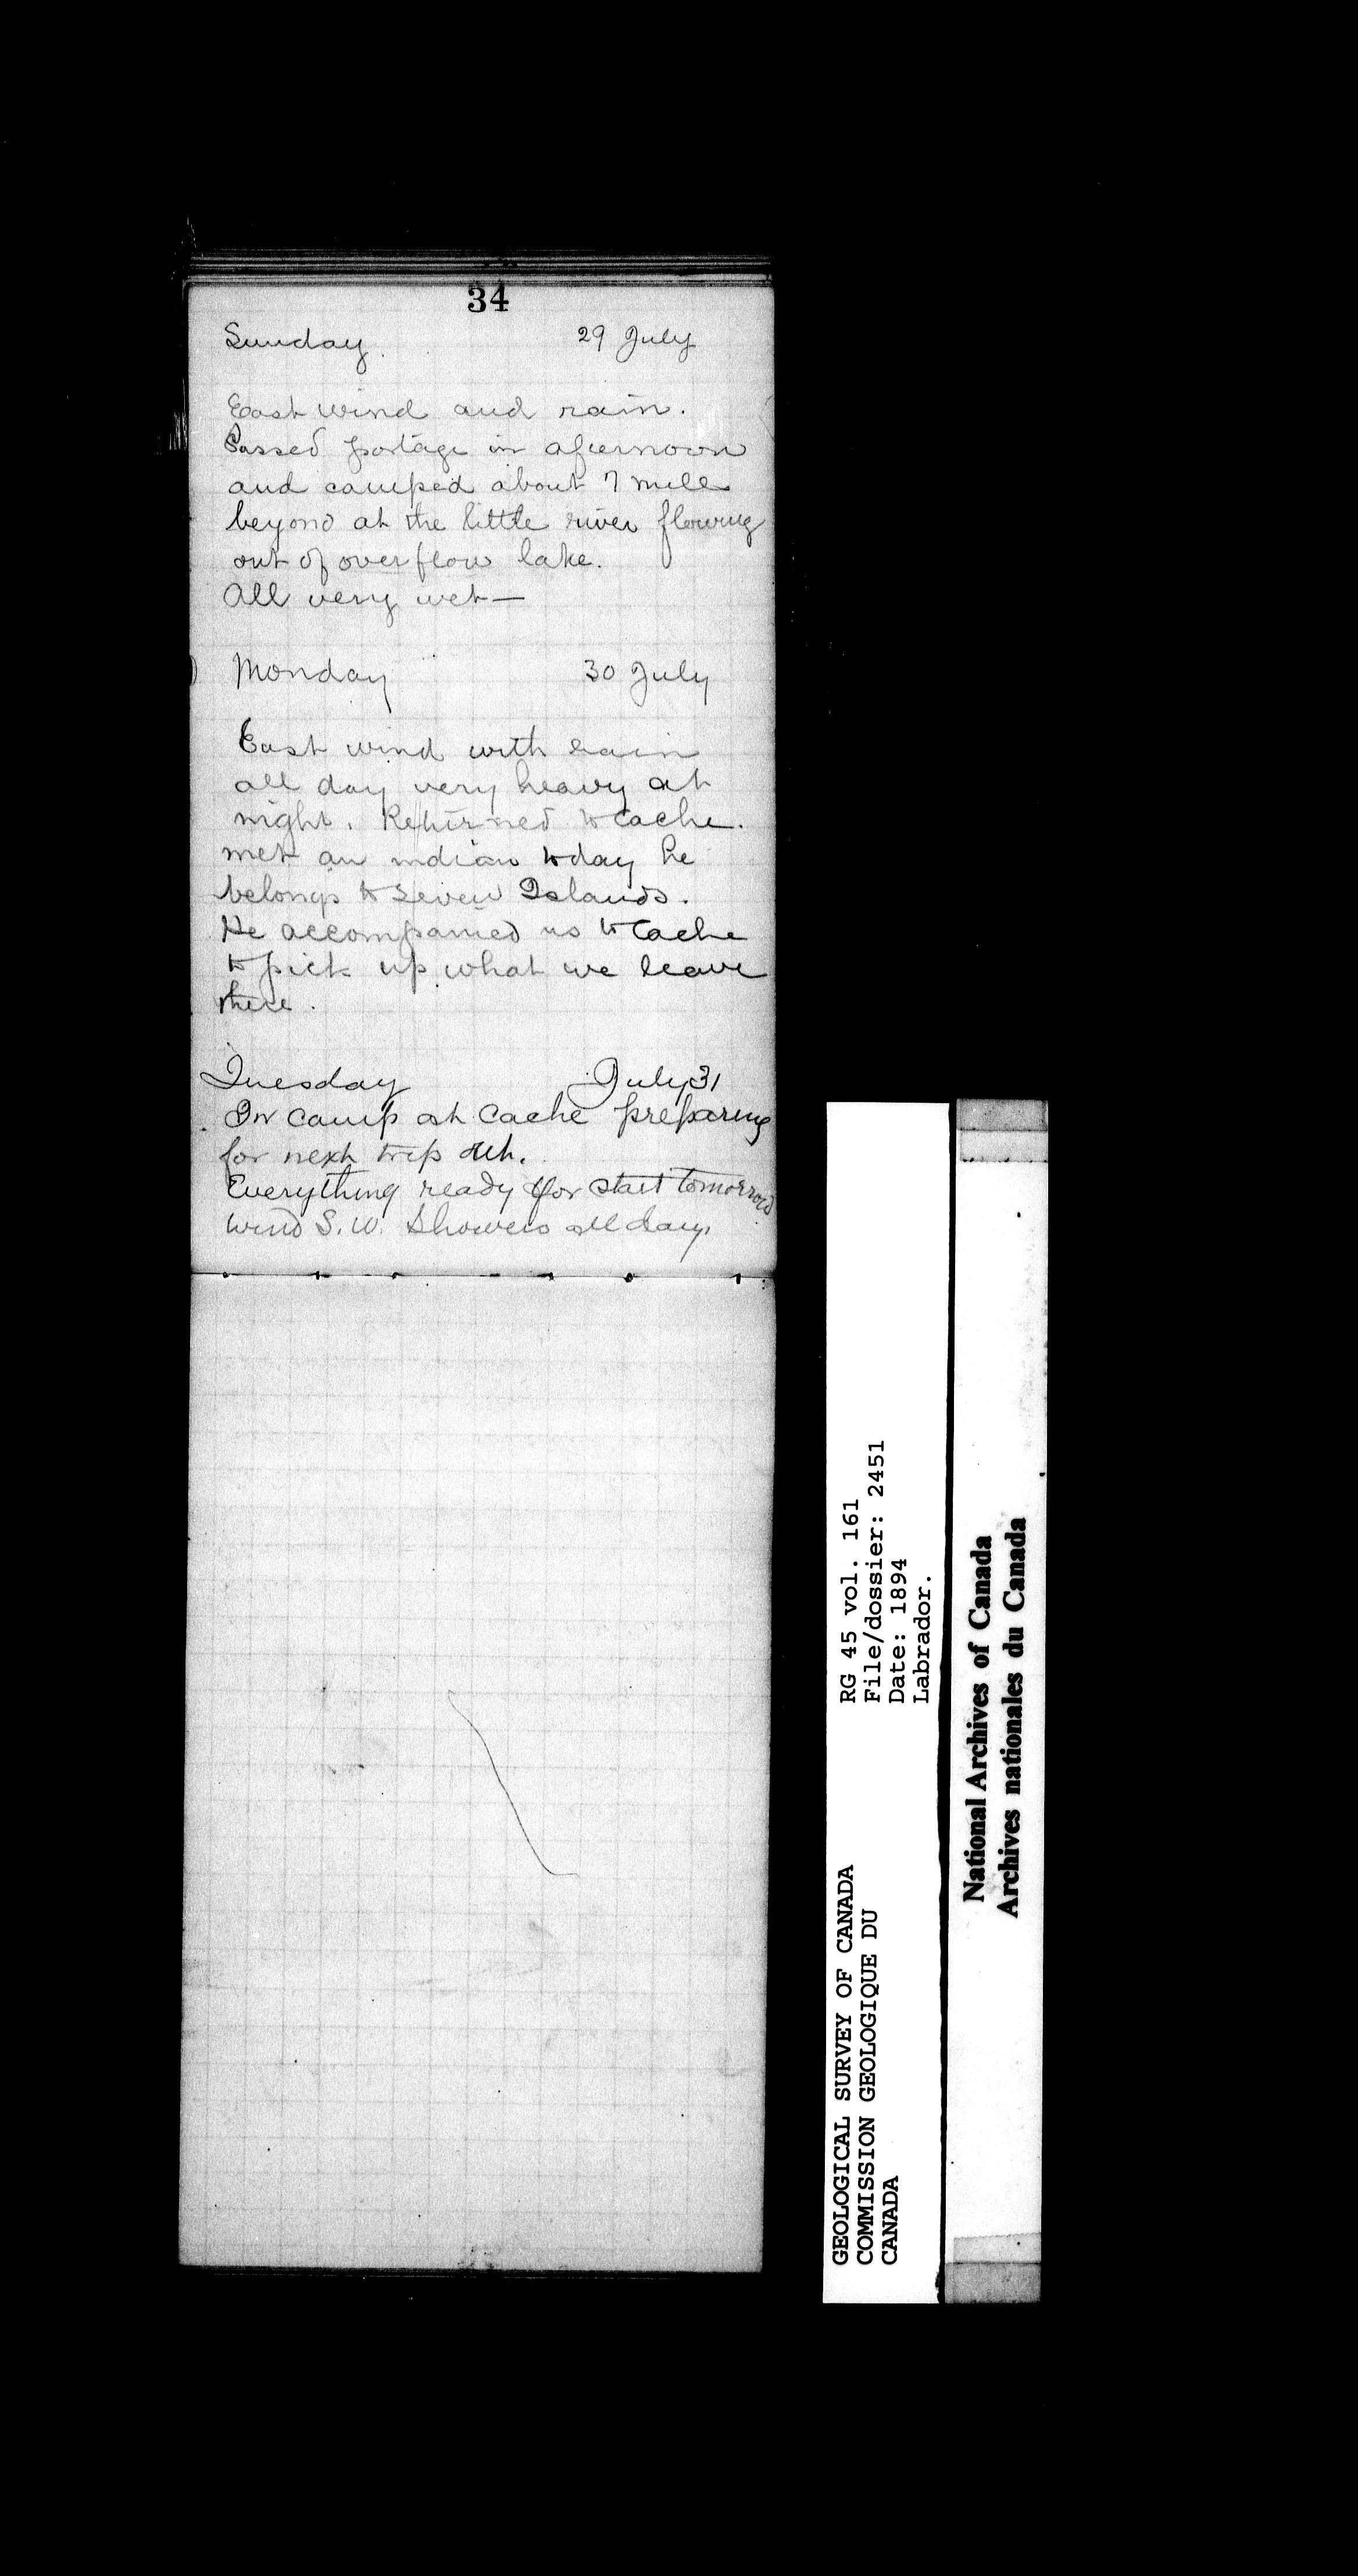 34
Sunday. 29 July
East wind and rain.
Passed portage in afternoon
and camped about 7 mile
beyond at the little river flowing
out of overflow lake.
All very wet—
Monday 30 July
East wind with rain
all day very heavy at
night. Returned to cache.
met an indian today he
belongs to Seven Islands.
He accompanied us to Cache
to pick up what we leave
there.
Tuesday July 31
In camp at Cache preparing
for next trip
Everything ready for start tomorrow
Wind S.W. Showers all day.
RG 45 vol. 161
File/dossier: 2451
Date: 1894
Labrador.
GEOLOGICAL SURVEY OF CANADA
COMMISSION GEOLOGIQUE DU
CANADA
National Archives of Canada
Archives nationales du Canada